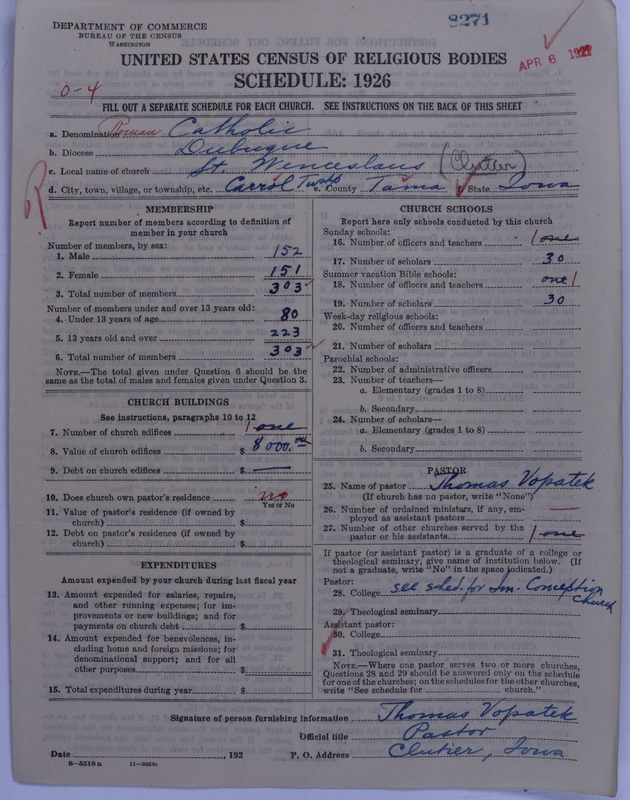 8271
DEPARTMENT OF COMMERCE
BUREAU OF THE CENSUS
WASHINGTON
APR 6 1927
UNITED STATES CENSUS OF RELIGIOUS BODIES
SCHEDULE: 1926
0-4
FILL OUT A SEPARATE SCHEDULE FOR EACH CHURCH. SEE INSTRUCTIONS ON THE BACK OF THIS SHEET
a. Denomination Roman Catholic
b. Diocese Dubuque
c. Local name of church St. Wenceslaus (Clutier)
d. City, town, village, or township, etc. Carrol Twsp e. County Tama f. State Iowa
MEMBERSHIP
Report number of members according to definition of
member in your church
Number of members, by sex:
1. Male 152
2. Female 151
3. Total number of members 303
Number of members under and over 13 years old:
4. Under 13 years of age 80
5. 13 years old and over 223
6. Total number of members 303
NOTE.—The total given under Question 6 should be
same as the total of males and females given under Question 3.
CHURCH BUILDINGS
See instructions, paragraphs 10 to 12
7. Number of church edifices 1 one
8. Value of church edifices $ 8000.00
9. Debt on church edifices $ —
10. Does church own pastor's residence no
Yes or No
11. Value of pastor's residence (if owned by
church) $
12. Debt on pastor's residence (if owned by
church) $
EXPENDITURES
Amount expended by your church during last fiscal year
13. Amount expended for salaries, repairs,
and other running expenses; for im-
provements or new buildings; and for
payments on church debt $
14. Amount expended for benevolences, in-
cluding home and foreign missions; for
denominational support; and for all
other purposes $
15. Total expenditures during year $
CHURCH SCHOOLS
Report here only schools conducted by this church
Sunday schools:
16. Number of officers and teachers 1 one
17. Number of scholars 30
Summer vacation Bible schools:
18. Number of officers and teachers one 1
19. Number of scholars 30
Week-day religious schools:
20. Number of officers and teachers
21. Number of scholars
Parochial schools:
22. Number of administrative officers
23. Number of teachers—
a. Elementary (grades 1 to 8)
b. Secondary
24. Number of scholars—
a. Elementary (grades 1 to 8)
b. Secondary
PASTOR
25. Name of pastor Thomas Vopatek
(If church has no pastor, write "None")
26. Number of ordained ministers, if any, em-
ployed as assistant pastors —
27. Number of other churches served by the
pastor or his assistants 1 one
If pastor (or assistant pastor) is a graduate of a college or
theological seminary, give name of institution below. (If
not a graduate, write "No" in the space indicated.)
Pastor:
28. College see sched. for Im. Conception
Church
29. Theological seminary
Assistant pastor:
30. College
31. Theological seminary
NOTE.—Where one pastor serves two or more churches,
Questions 28 and 29 should be answered only on the schedule
for one of the churches; on the schedules for the other churches,
write "See schedule for church."
Signature of person furnishing information Thomas Vopatek
Official title Pastor
Date , 192 P. O. Address Clutier, Iowa
8—5518 a